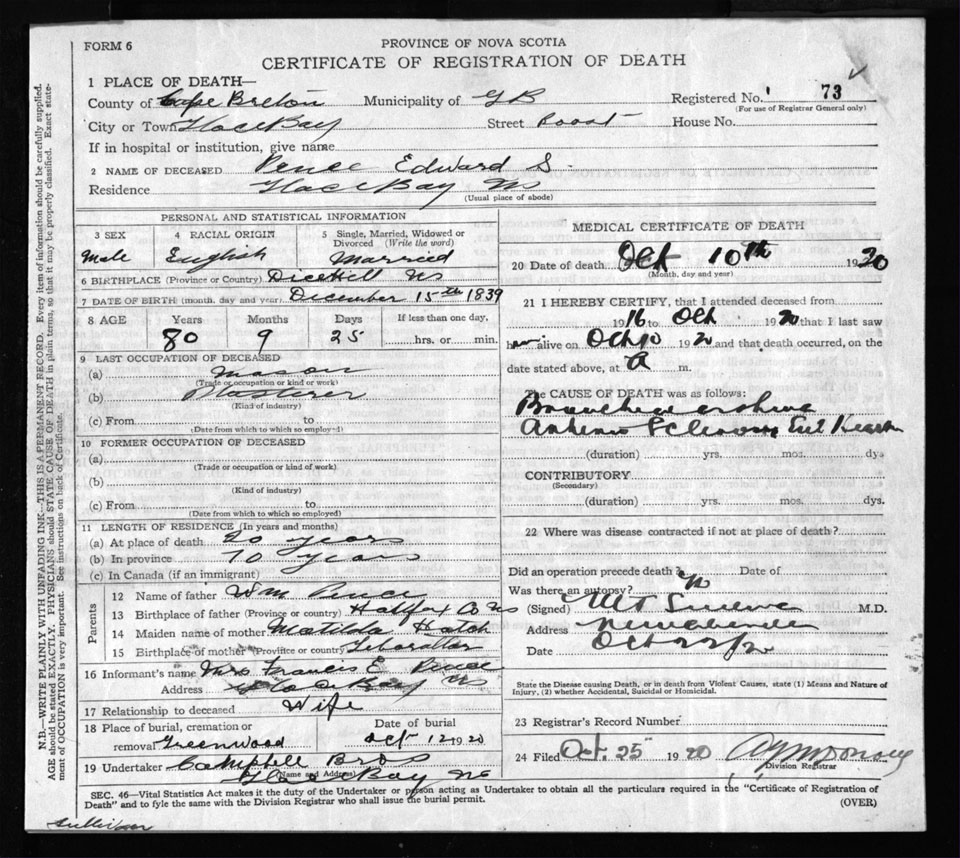 FORM 6
PROVINCE OF NOVA SCOTIA
CERTIFICATE OF REGISTRATION OF DEATH
1 PLACE OF DEATH—
County of Cape Breton Municipality of G B Registered No. 73
(For use of Registrar General only)
City or Town Street House No.
If in hospital or institution, give name
2 NAME OF DECEASED Edward S.
Residence Bay NS
(Usual place of abode)
PERSONAL AND STATISTICAL INFORMATION
3 SEX 4 RACIAL ORIGIN 5 Single, Married, Widowed or Divorced (Write the word)
Male English Married
6 BIRTHPLACE (Province or Country) NS
7 DATE OF BIRTH (month, day and year) December 15th 1839
8 AGE Years Months Days If less than one day,
80 9 25 hrs. or min.
9 LAST OCCUPATION OF DECEASED
(a) Mason
(Trade or occupation or kind or work)
(b) Plasterer
(Kind of industry)
(c) From to
(Date from which to which so employed)
10 FORMER OCCUPATION OF DECEASED
(a)
(Trade or occupation or kind of work)
(b)
(Kind of industry)
(c) From to
(Date from which to which so employed)
11 LENGTH OF RESIDENCE (In years and months)
(a) At place of death years
(b) In province years
(c) In Canada (if an immigrant)
Parents
12 Name of father Wm
13 Birthplace of father (Province or country) Halifax Co NS
14 Maiden name of mother Matilda Hatch
15 Birthplace of mother (Province or country)
16 Informant's name Mrs Francis E
Address Bay NS
17 Relationship to deceased Wife
18 Place of burial, cremation or Date of burial
removal Greenwood Oct 12 1920
19 Undertaker Campbell Bros
(Name and Address) Bay NS
MEDICAL CERTIFICATE OF DEATH
20 Date of death Oct 10th 1920
(Month, day and year)
21 I HEREBY CERTIFY, that I attended deceased from
1916 to Oct 1920 that I last saw
h alive on Oct 10 1920 and that death occurred, on the
date stated above, at A m.
The CAUSE OF DEATH was as follows:
(duration) yrs. mos. dys
CONTRIBUTORY
(Secondary)
(duration) yrs. mos. dys.
22 Where was disease contracted if not at place of death?
Did an operation precede death? No Date of
Was there an autopsy?
(Signed) M.D.
Address
Date Oct
State the Disease causing Death, or in death from Violent Causes, state (1) Means and Nature of
Injury, (2) whether Accidental, Suicidal or Homicidal.
23 Registrar's Record Number
24 Filed Oct. 25 1920
Division Registrar
SEC. 46—Vital Statistics Act makes it the duty of the Undertaker or person acting as Undertaker to obtain all the particulars required in the "Certificate of Registration of
Death" and to fyle the same with the Division Registrar who shall issue the burial permit.
(OVER)
N.B.—WRITE PLAINLY WITH UNFADING INK—THIS IS A PERMANENT RECORD. Every item of information should be carefully supplied.
AGE should be stated EXACTLY. PHYSICIANS should STATE CAUSE OF DEATH in plain terms, so that it may be properly classified. Exact state-
ment of OCCUPATION is very important. See instructions on back of Certificate.